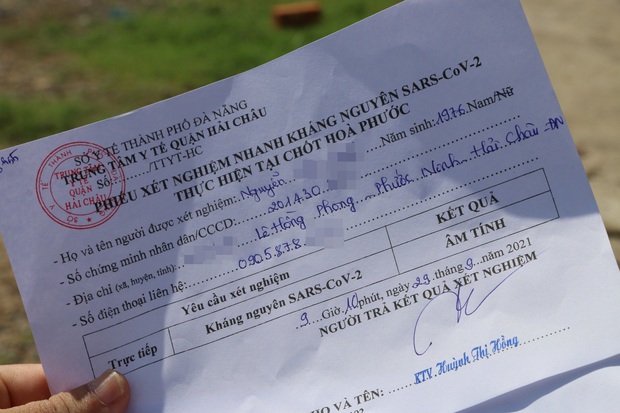 SỞ Y TẾ THÀNH PHỐ ĐÀ NẴNG
TRUNG TÂM Y TẾ QUẬN HẢI CHÂU
Số: ....../TTYT-HC
PHIẾU XÉT NGHIỆM NHANH KHÁNG NGUYÊN SARS-CoV-2
THỰC HIỆN TẠI CHỐT HOÀ PHƯỚC
- Họ và tên người được xét nghiệm: Nguyễn Năm sinh: 1976 Nam/Nữ
- Số chứng minh nhân dân/CCCD: 201430
- Địa chỉ (xã, huyện, tỉnh): Lê Hồng Phong, Phước Ninh, Hải Châu - ĐN
- Số điện thoại liên hệ: 0905.878
Yêu cầu xét nghiệm KẾT QUẢ
Trực tiếp Kháng nguyên SARS-CoV-2 ÂM TÍNH
9 Giờ, 10 phút, ngày 29 tháng 9 năm 2021
NGƯỜI TRẢ KẾT QUẢ XÉT NGHIỆM
KTV. Huỳnh Thị Hồng
HỌ VÀ TÊN:
QUẬN
HẢI CHÂU